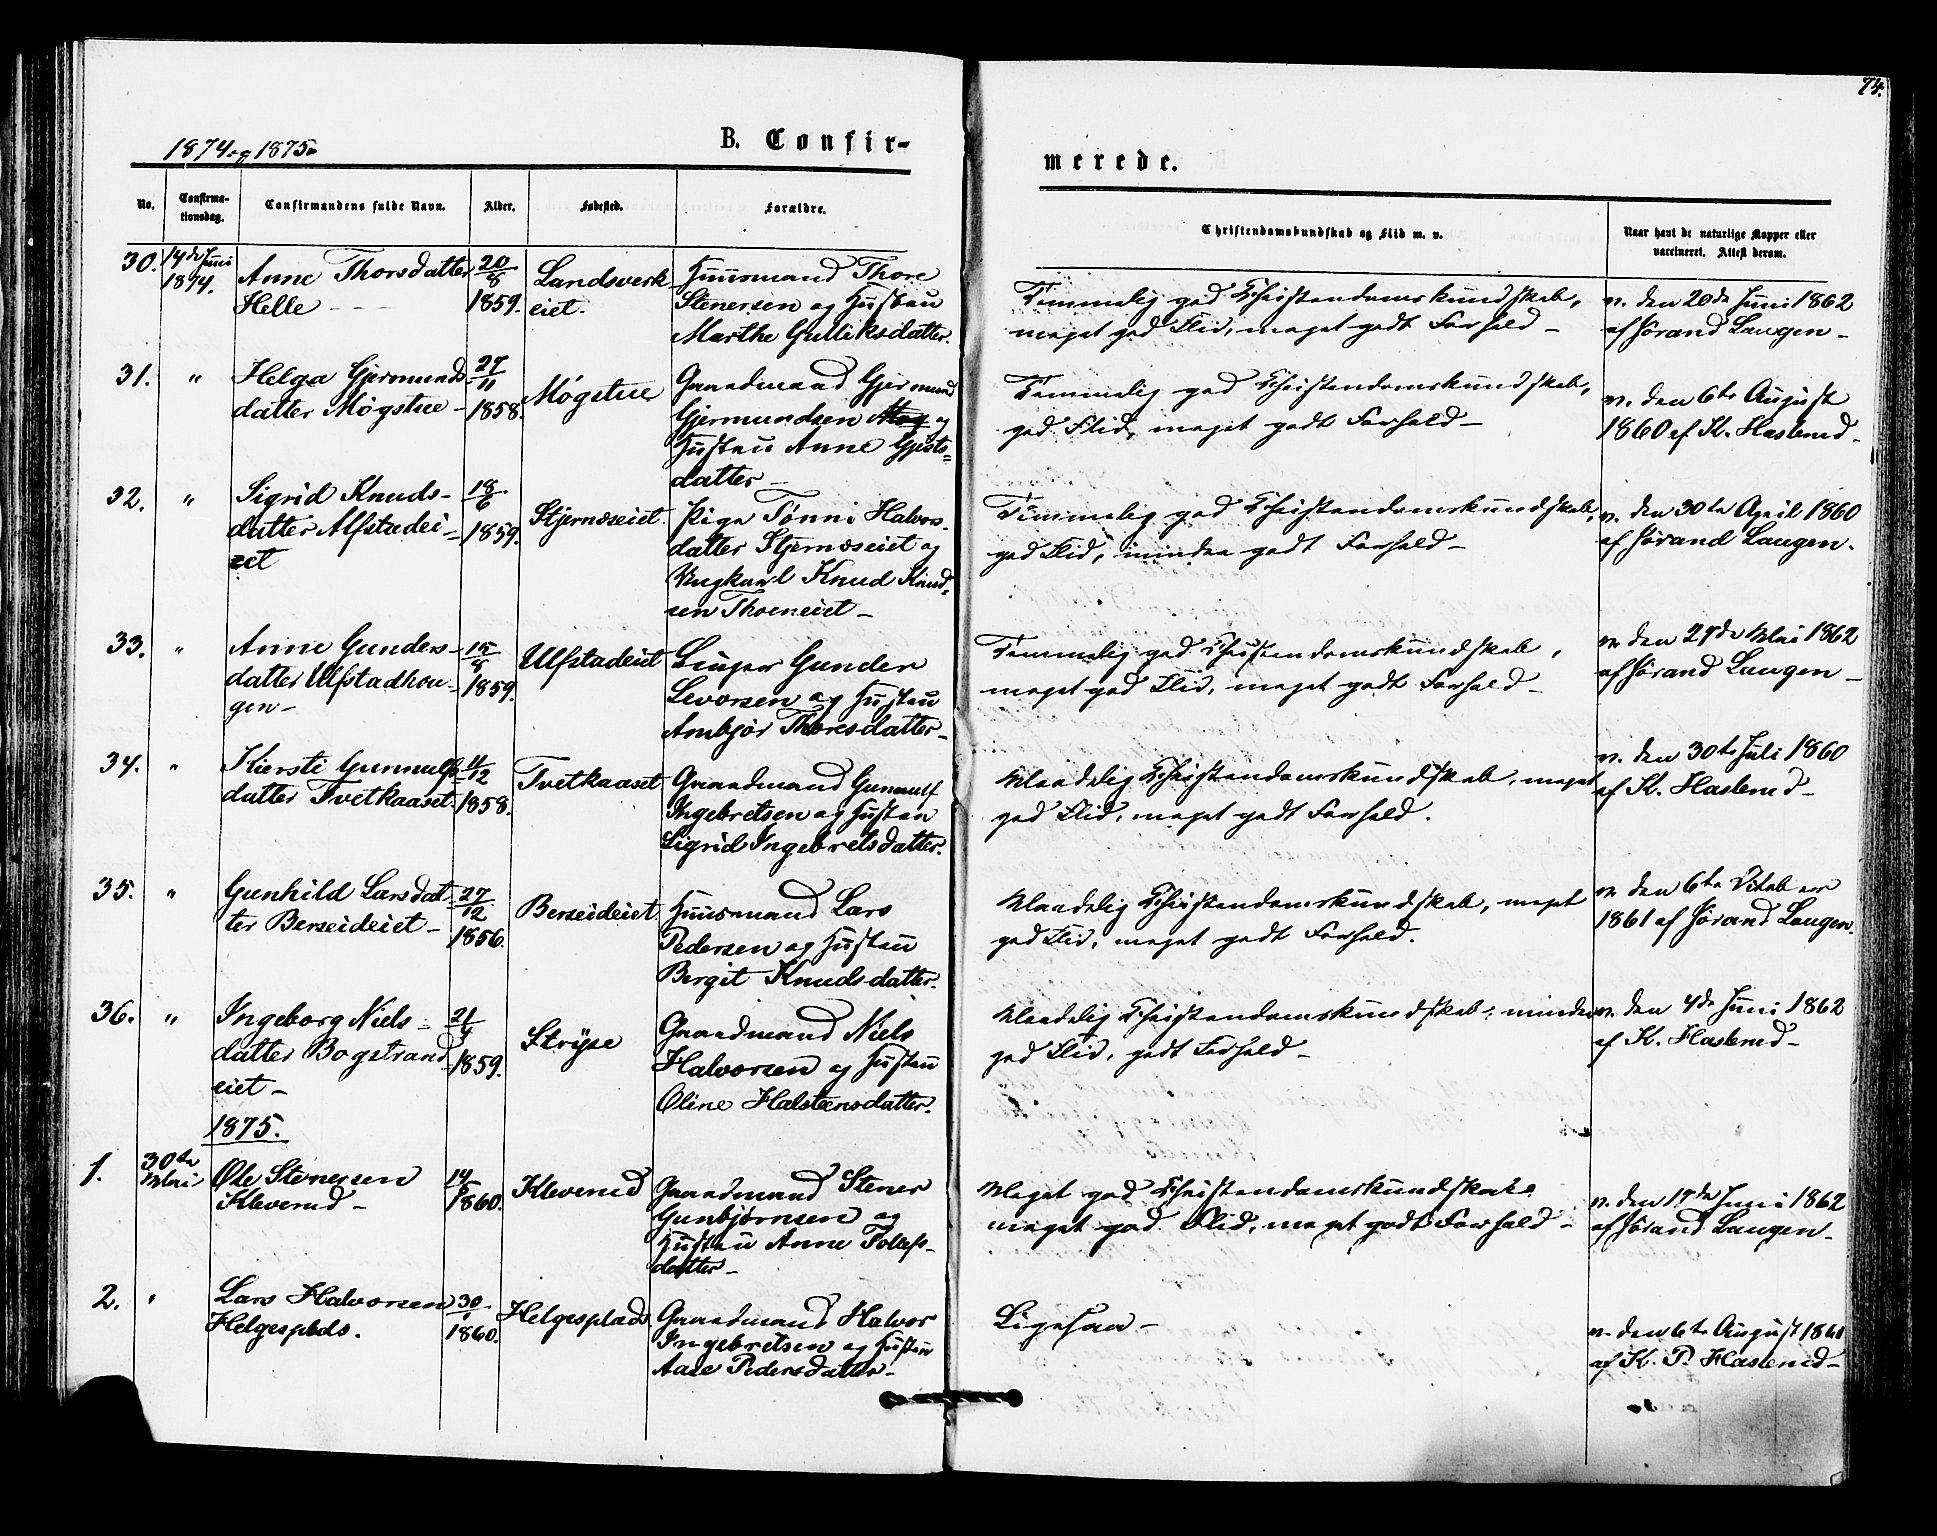 74.
1874 og 1875.
B. Confir-
merede.
No.
Confirma-
tionsdag.
Confirmandens fulde Navn.
Alder.
Fødested.
Forældre.
Christendomskundskab og Flid m. v.
Naar havt de naturlige Kopper eller
vaccineret. Attest derom.
30.
14de Juni
1874.
Anne Thorsdatter
Helle
20/8
1859.
Landsverk
eiet.
Huusmand Thore
Stenersen og Hustru
Marthe Gulliksdatter.
Temmelig god Christendomskundskab,
meget god Flid, meget godt Forhold –
v. den 20de Juni 1862
af Jørand Laugen –
31.
"
Helga Gjermunds
datter Møgstue –
27/11
1858.
Møgstue
Gaardmand Gjermund
Gjermundsen og
Hustru Anne Gjests=
datter –
Temmelig god Christendomskundskab,
god Flid, meget godt Forhold –
v. den 6te August
1860 af K. Haslerud –
32.
"
Sigrid Knuds-
datter Ulfstadei=
et
18/6
1859.
Stjernæseiet.
Pige Tønni Halvors-
datter Stjernæseiet og
Ungkarl Knud Knud=
sen Thoeneiet –
Temmelig god Christendomskundskab,
god Flid, mindre godt Forhold –
v. den 30te April 1860
af Jørand Laugen.
33.
"
Anne Gunders-
datter Ulfstadhou=
gen –
15/8
1859.
Ulfstadeiet
Gunder
Levorsen og Hustru
Ambjør Thoresdatter –
Temmelig god Christendomskundskab,
meget god Flid, meget godt Forhold –
v. den 27de Mai 1862
af Jørand Laugen –
34.
"
Kiersti Gunnulfs
datter Tvetkaaset.
4/12
1858.
Tvetkaaset
Gaardmand Gunnulf
Ingebretsen og Hustru
Sigrid Ingebretsdatter.
Maadelig Christendomskundskab, meget
god Flid, meget godt Forhold.
v. den 30te Juli 1860
af K. Haslerud –
35.
"
Gunhild Larsdat
ter Berseideiet –
27/12
1856.
Berseideiet
Huusmand Lars
Pedersen og Hustru
Bergit Knudsdatter.
Maadelig Christendomskundskab, meget
god Flid, meget godt Forhold.
v. den 6te Octob er
1861 af Jørand Laugen.
36.
"
Ingeborg Niels=
datter Bogstrand
eiet –
21/4
1859.
Stryse
Gaardmand Niels
Halvorsen og Hustru
Oline Halsteensdatter.
Maadelig Christendomskundskab, mindre
god Flid, godt Forhold –
v. den 4de Juni 1862
af K. Haslerud –
1875.
1.
30te
Mai
Ole Stenersen
Kleverud –
1860.
Kleverud
Gaardmand Stener
Gunbjørnsen og
Hustru Anne Tollefs-
datter –
Meget god Christendomskundskab,
meget god Flid, meget godt Forhold –
v. den 17de Juni 1862
af Jørand Laugen –
2.
"
Lars Halvorsen
Helgesplads.
1860.
Helgesplads.
Gaardmand Halvor
Ingebretsen og Hustru
Aase Pedersdatter –
Ligesaa –
v. den 6te August 1860
af K. P. Haslerud –